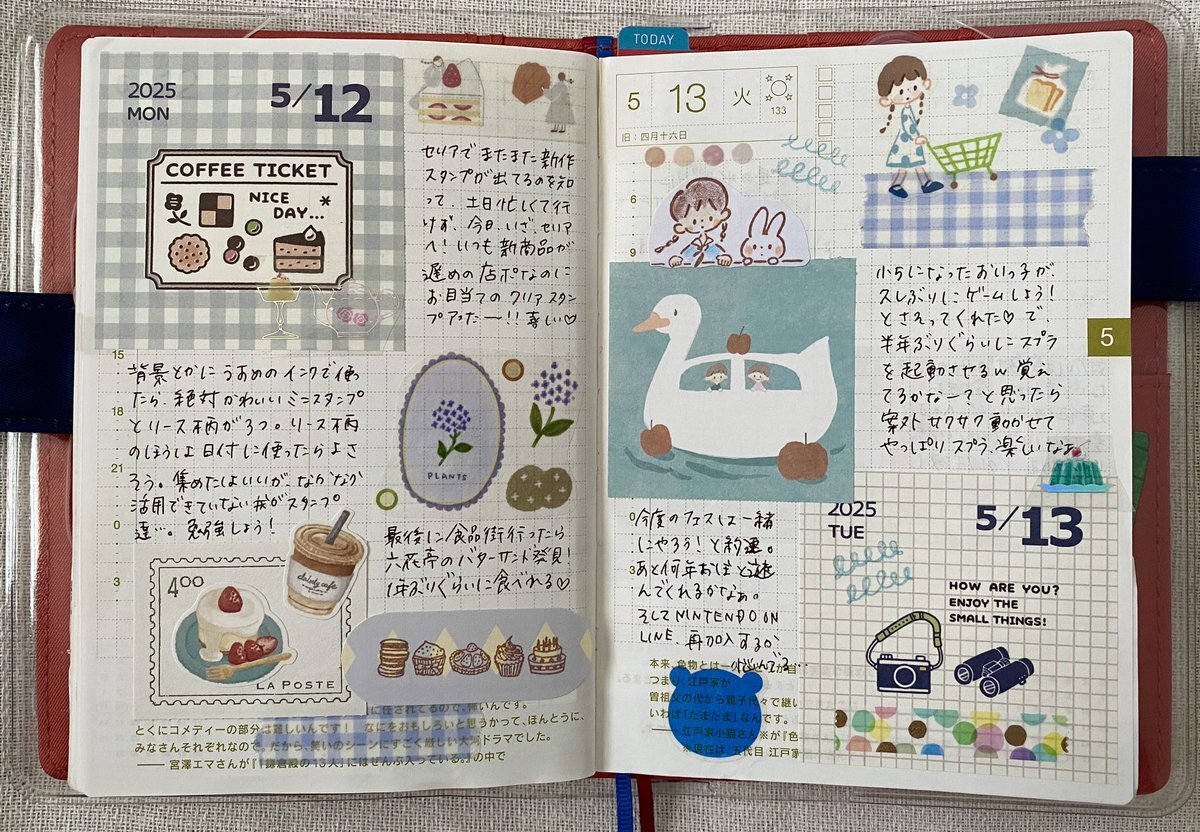 2025
MON
5/12
COFFEE TICKET
NICE
DAY...
セリアでまたまた新作
スタンプが出てるのを知
って、土日忙しくて行
けず、今日、いざ、セリア
へ！いつも新商品が
遅めの店ポなのに
お目当てのクリアスタン
プアったー!!喜しい♡
15
18
21
0
3
背景とかにうすめのインクで使
ったら、絶対かわいいミニスタンプ
とリース柄が3つ。リース柄
のほうは日付に使ったらよさ
そう。集めたはいいが、なかなか
活用できていない我がスタンプ
達…。勉強しよう！
PLANTS
最後に食品街行ったら
六花亭のバターサンド発見！
1年ぶりぐらいに食べれる♡
4.00
LA POSTE
dainty cafe
に圧されてるので、怖いんです。
とくにコメディーの部分は難しいんです！　なにをおもしろいと思うかって、ほんとうに、
みなさんそれぞれなので。だから、笑いのシーンにすごく厳しい大河ドラマでした。
── 宮澤エマさんが『「鎌倉殿の13人」にはぜんぶ入っている。』の中で
TODAY
5
13
火
133
旧：四月十六日
6
9
0
3
5
小5になったおいっ子が、
久しぶりにゲームしよう！
とさそってくれた♡で、
半年ぶりぐらいにスプラ
を起動させるw 覚え
てるかなー？と思ったら
案外サクサク動かせて
やっぱりスプラ、楽しいなぁ
今度のフェスは一緒
にやろう！と約束。
あと何年おばと遊
んでくれるかなぁ。
そしてNINTENDO ON
LINE、再加入するか
悩んでる…
2025
TUE
5/13
HOW ARE YOU?
ENJOY THE
SMALL THINGS!
本来、色物とは一
つまり、江戸家が
曽祖父の代から親子代々で継い
いわば「たまたま」なんです。
── 江戸家小猫さん※が『色
※現在は、五代目 江戸家